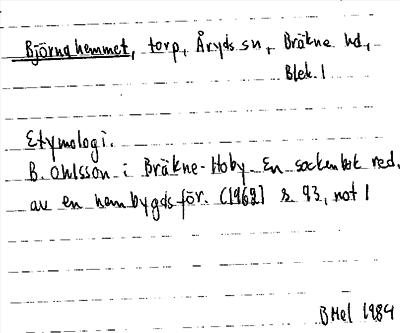 Björnahemmet, torp, Åryds sn, Bräkne hd,
Blek. l
Etymologi.
B. Ohlsson i Bräkne-Hoby. En sockenbok red.
av en hembygdsför. (1962) s 93, not 1
BHel 1984